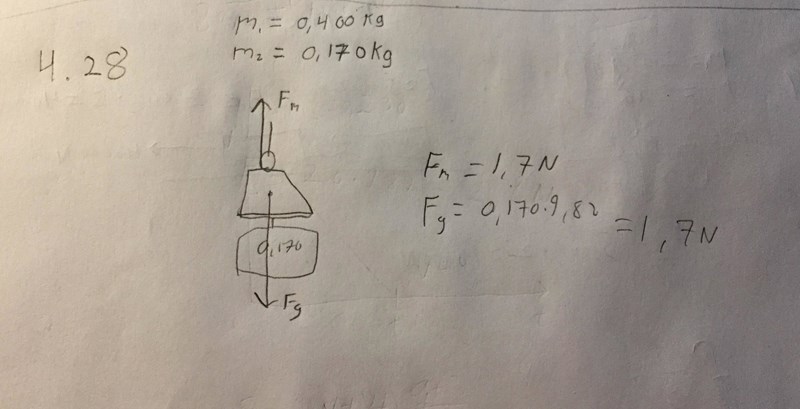 m₁ = 0,400kg
m₂ = 0,170kg
4.28
Fₘ
0,170
Fg
Fₘ = 1,7N
Fg = 0,170·9,82 = 1,7N